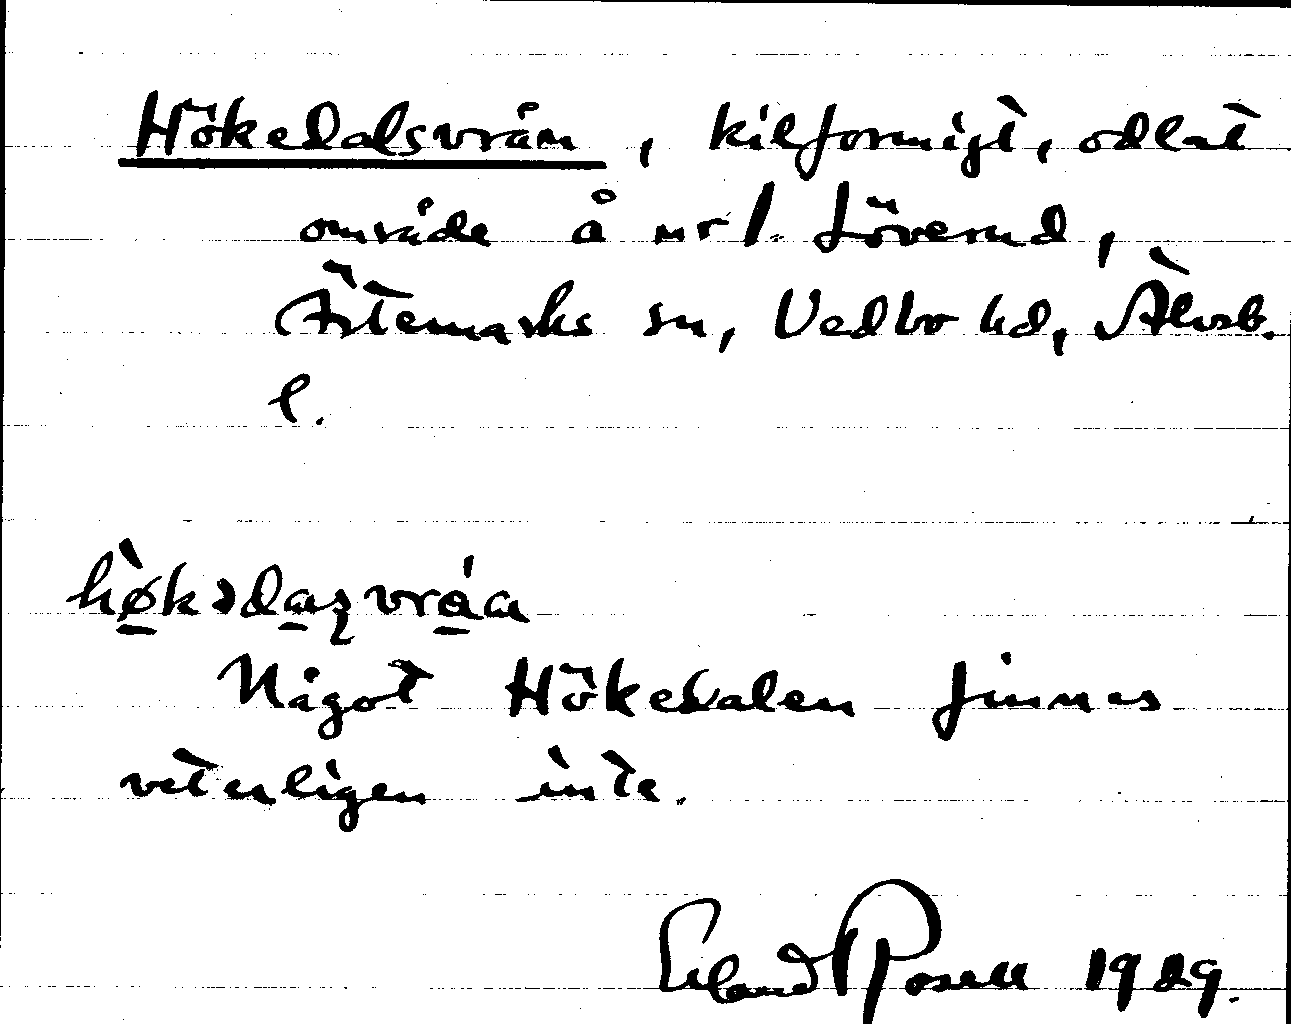 Hökedalsvrån, kilformigt, odlat
område å nr 1. Löverud,
Ärtemarks sn, Vedbo hd, Älvsb.
l.
hø̀kədaʂvrá̱a
Något Hökedalen finnes
veterligen inte.
Erland Rosell 1929.